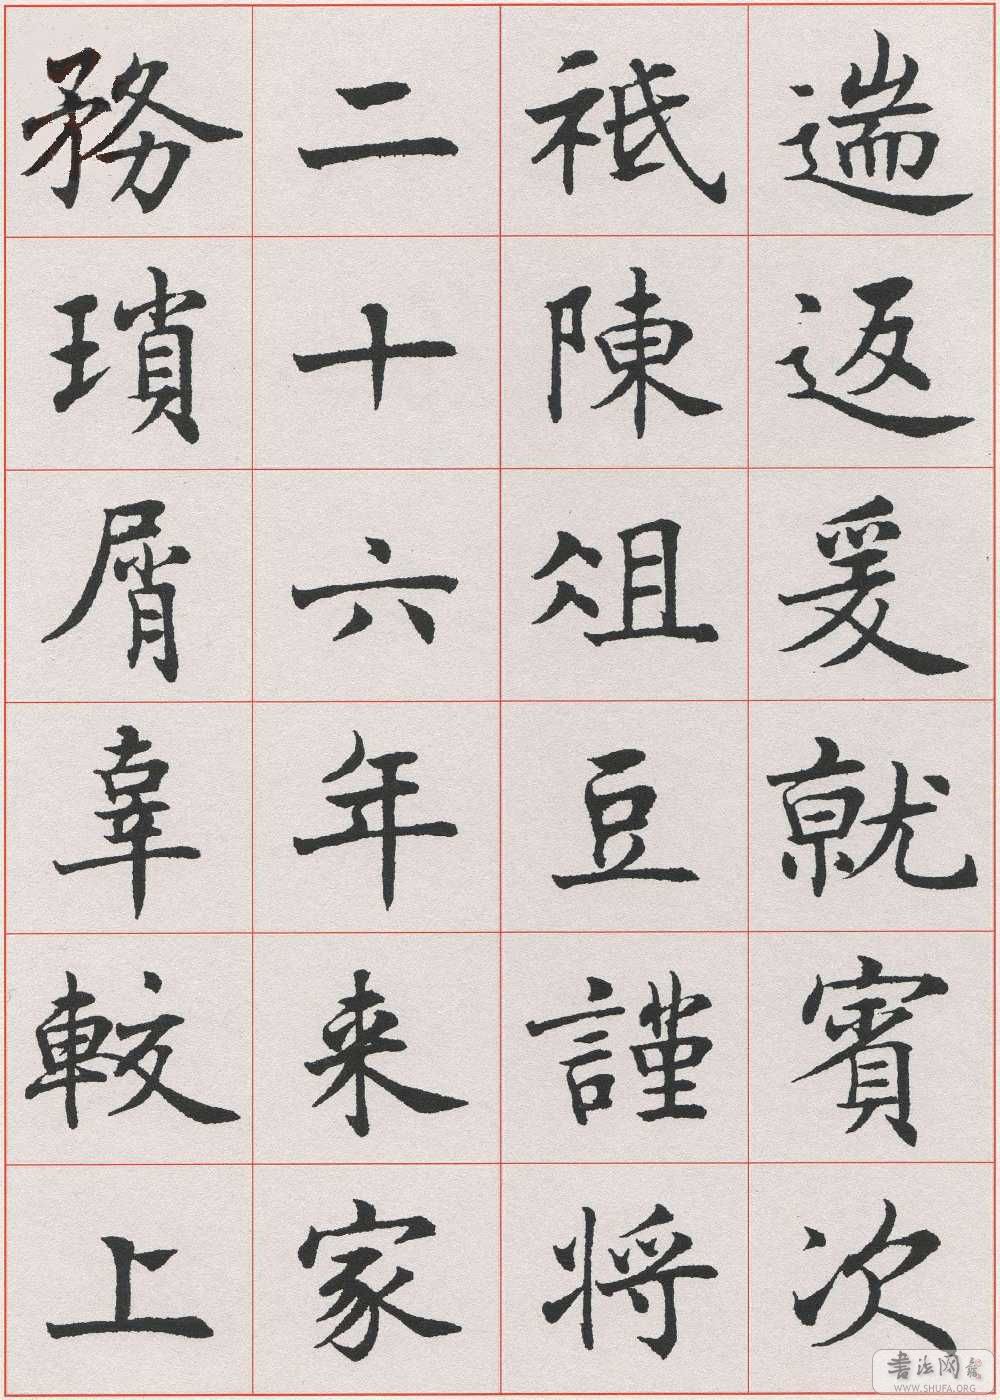 遄返爰就賓次
祗陳俎豆謹將
二十六年来家
務瑣屑辜較上
書法网
WWW.SHUFA.ORG